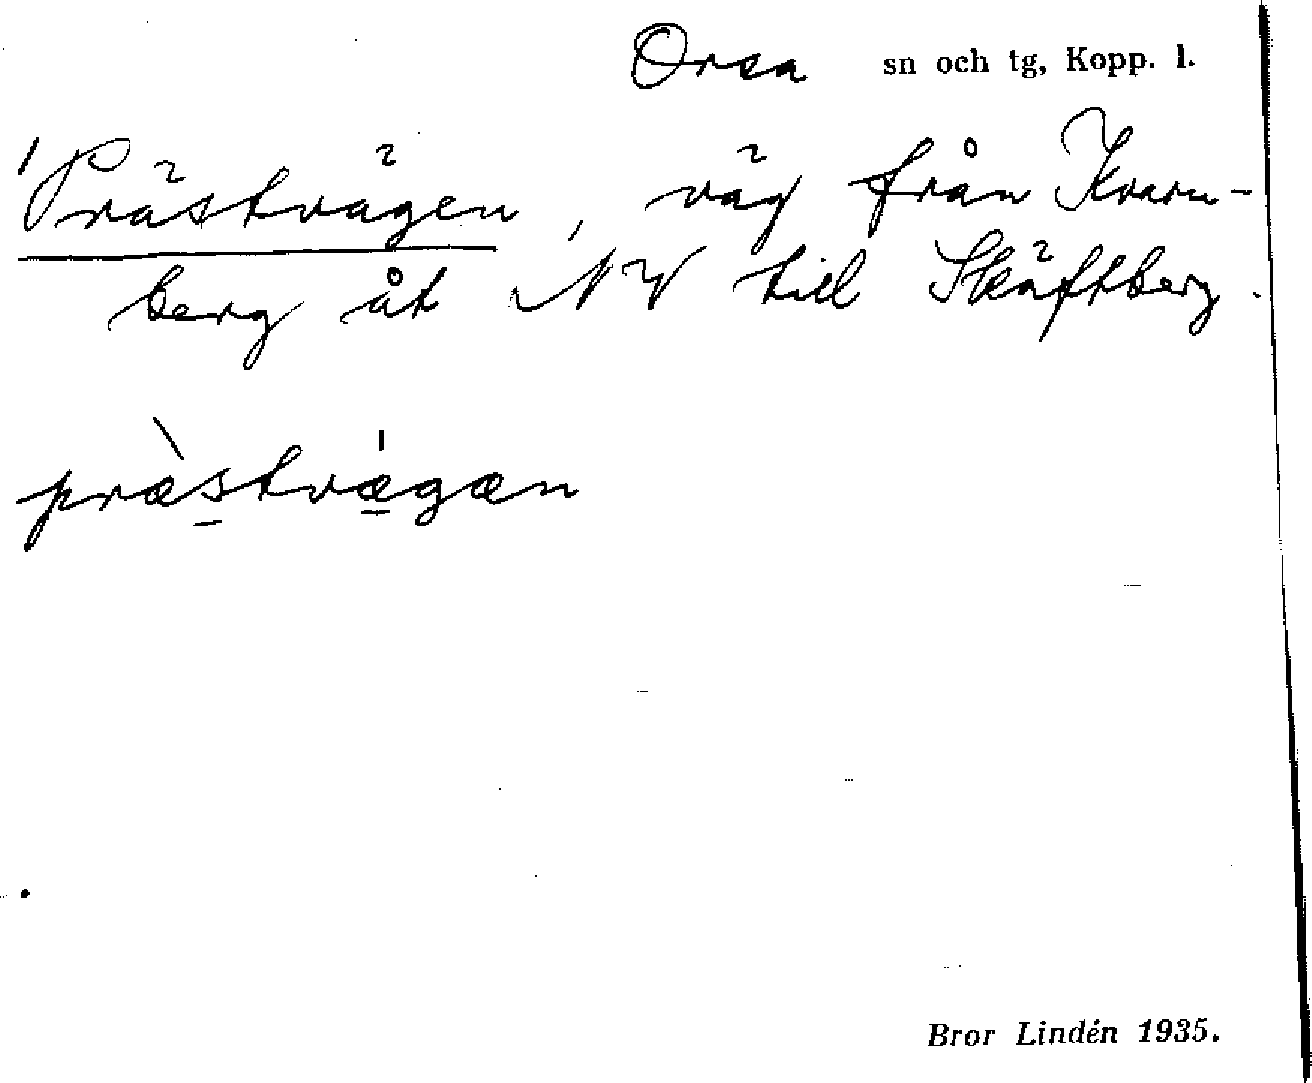 Orsa sn och tg, Kopp. l.
'Prästvägen, väg från Kvarn-
berg åt NV till Skäftberg.
præ̀stvæ̍gæn
Bror Lindén 1935.